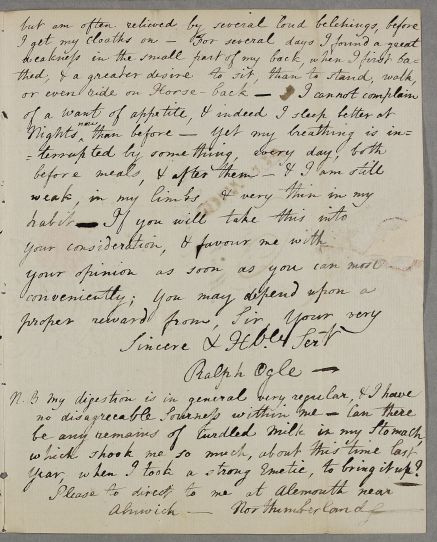 but am often relieved by several loud belchings, before
I get my cloaths on — For several days I found a great
weakness in the small part of my back, when I first ba-
thed, & a greater desire to sit, than to stand, walk,
or even ride on Horse-back — I cannot complain
of a want of appetite, & indeed I sleep better at
Nights now, than before — yet my breathing is in-
-terrupted by something, every day, both
before meals, & after them — & I am still
weak, in my limbs & very thin in my
habit — If you will take this into
your consideration, & favour me with
your opinion as soon as you can most
conveniently; you may depend upon a
proper reward from, Sir, Your very
Sincere & Hble Sert
Ralph Ogle —
N.B my digestion is in general very regular, & I have
no disagreeable Sourness within me — Can there
be any remains of Curdled Milk in my Stomach,
which shook me so much, about this time last
Year, when I took a strong Emetic, to bring it up?
Please to direct to me at Alemouth near
Alnwick — Northumberland